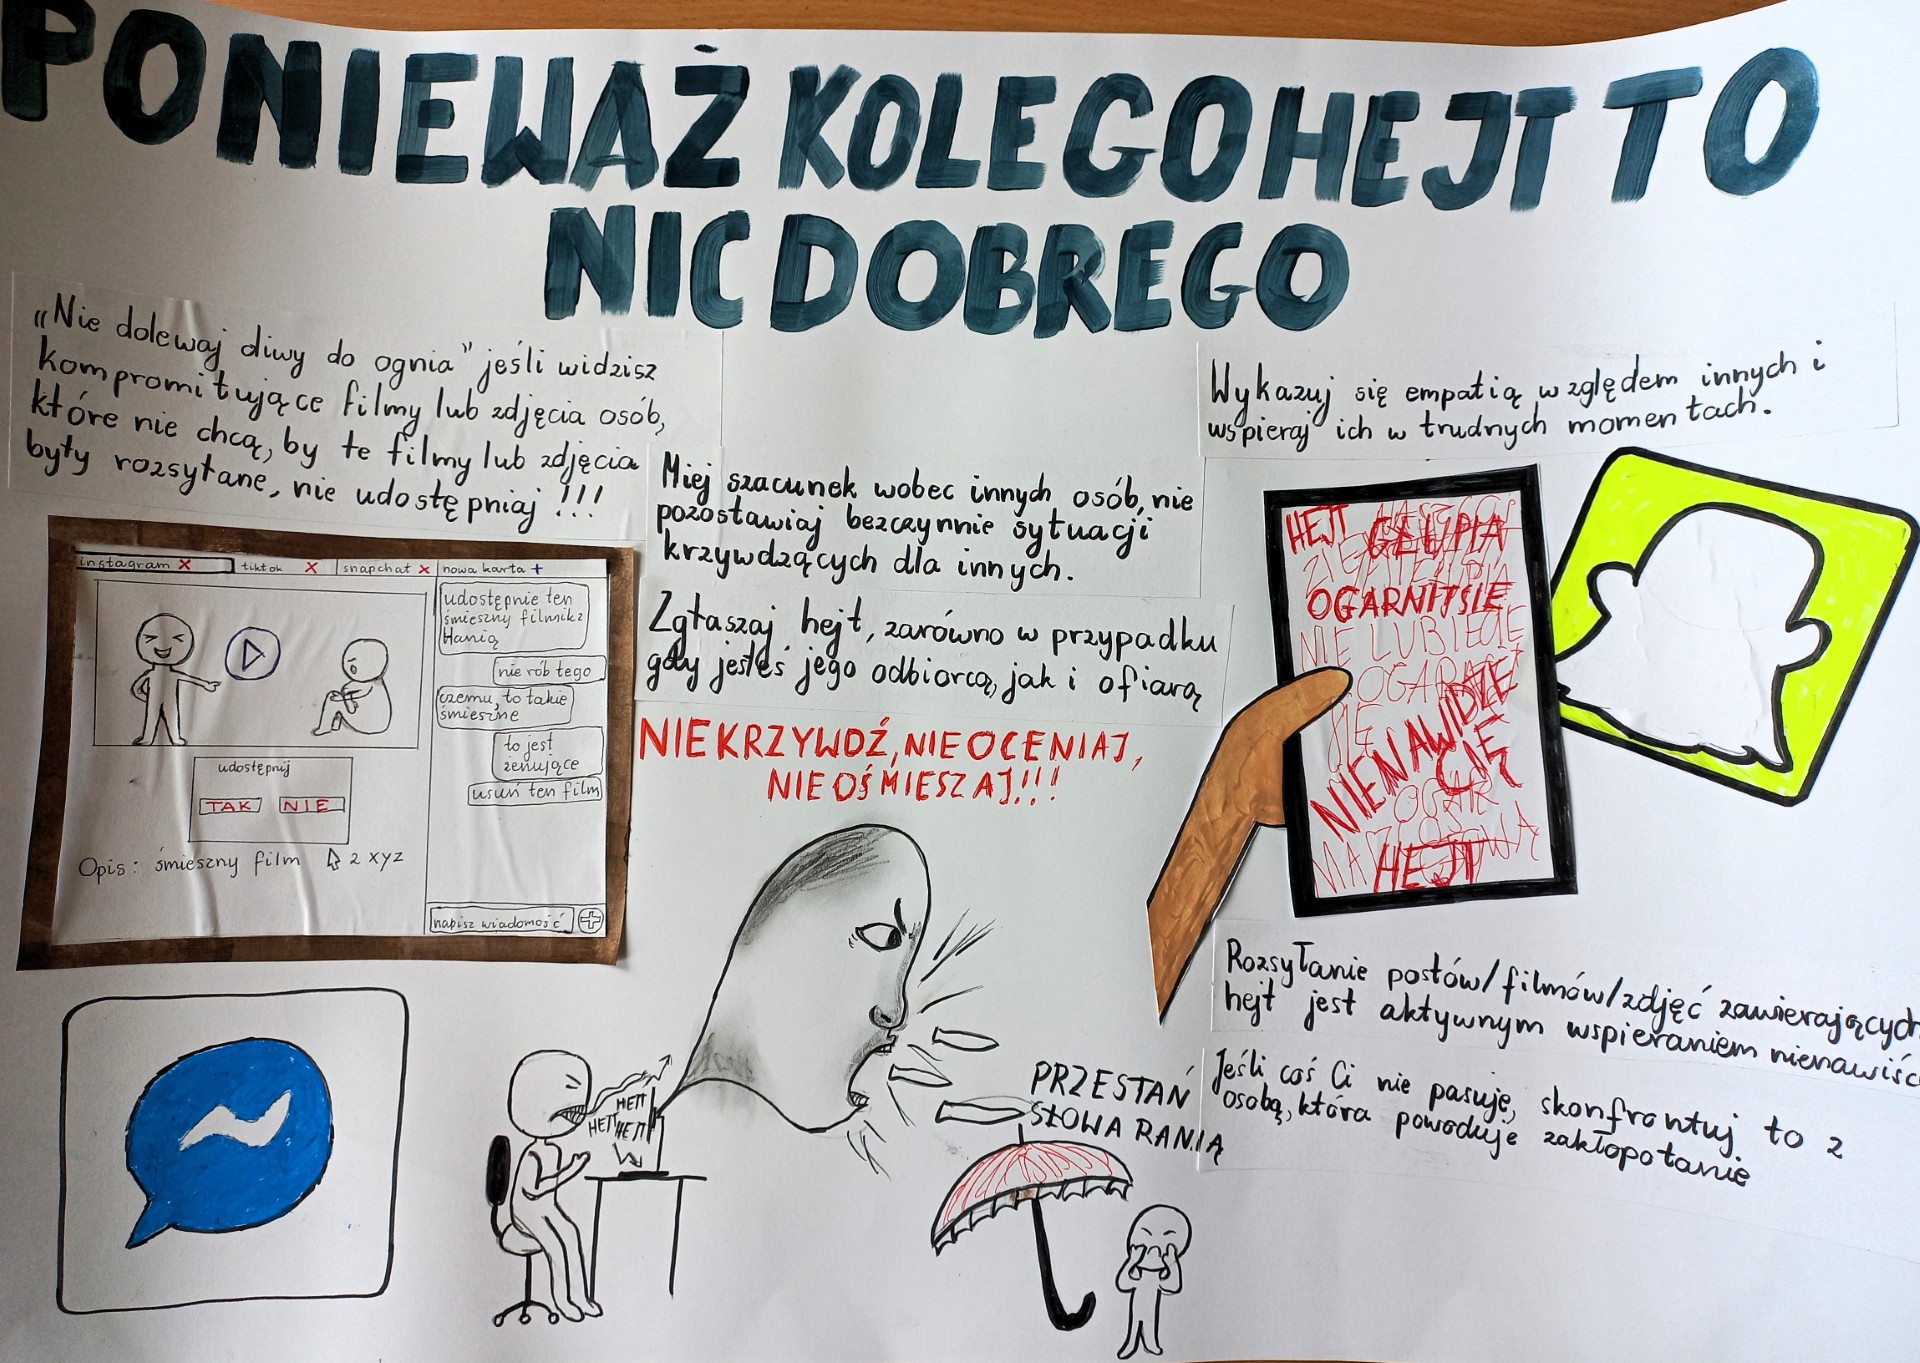 PONIEWAŻ KOLEGO HEJT TO
NIC DOBREGO
„Nie dolewaj oliwy do ognia" jeśli widzisz
kompromitujące filmy lub zdjęcia osób,
które nie chcą, by te filmy lub zdjęcia
były rozsyłane, nie udostępniaj !!!
Miej szacunek wobec innych osób, nie
pozostawiaj bezczynnie sytuacji
krzywdzących dla innych.
Zgłaszaj hejt, zarówno w przypadku
gdy jesteś jego odbiorcą, jak i ofiarą
NIE KRZYWDŹ, NIE OCENIAJ,
NIE OŚMIESZAJ!!!
Wykazuj się empatią względem innych i
wspieraj ich w trudnych momentach.
instagram X tiktok X snapchat X nowa karta +
udostępnie ten
śmieszny filmik z
Hanią
nie rób tego
czemu, to takie
śmieszne
to jest
żenujące
usuń ten film
udostępnij
TAK NIE
Opis: śmieszny film z xyz
napisz wiadomość
HEJT
GŁUPIA
OGARNIJ SIĘ
NIE LUBIE CIĘ
OGARNIJ
SIĘ
NIENAWIDZE
CIĘ
HEJT
HEJT
HEJT HEJT
PRZESTAŃ
SŁOWA RANIĄ
Rozsyłanie postów/filmów/zdjęć zawierających
hejt jest aktywnym wspieraniem nienawiści
Jeśli coś Ci nie pasuje, skonfrontuj to z
osobą, która powoduje zakłopotanie